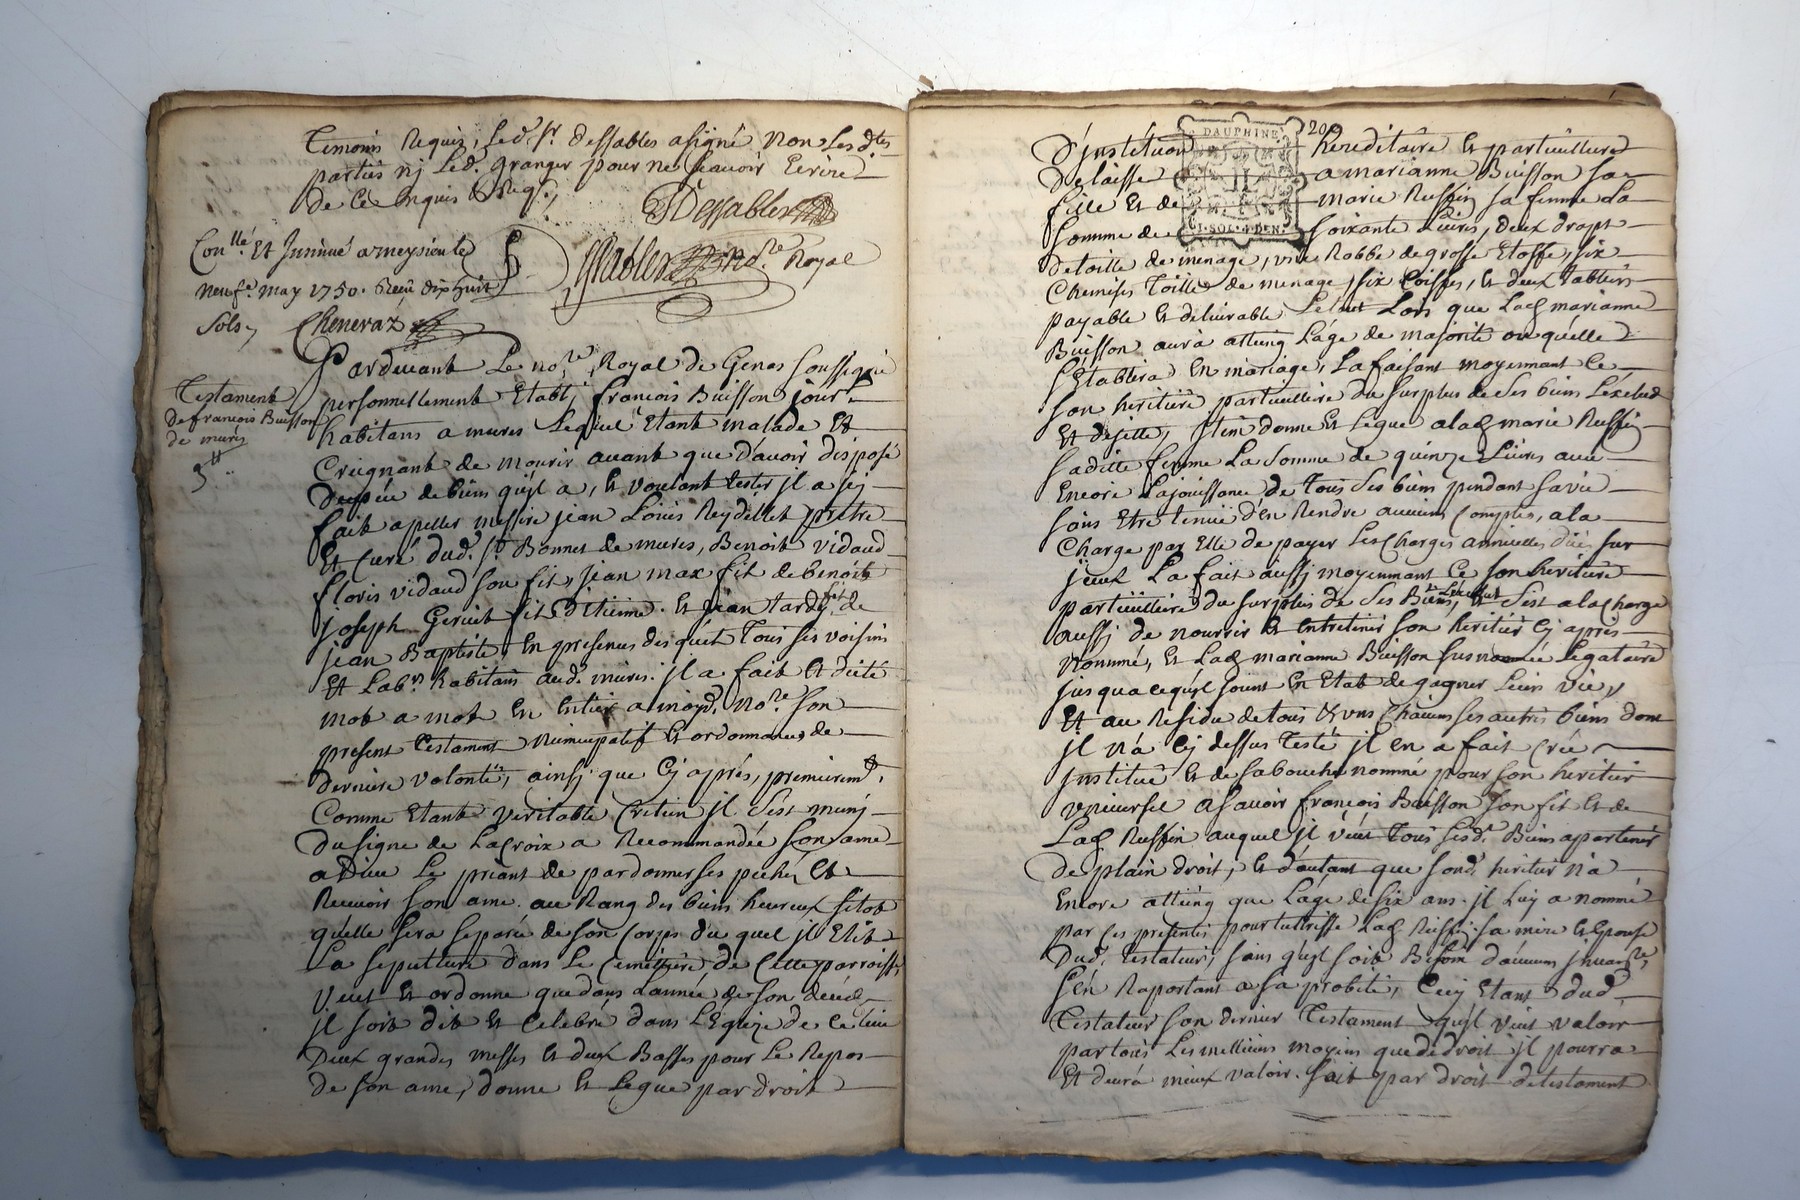 Temoins Requis, Led. Sr. Dessables a signé Non Les dtes
parties nj Led. Granger pour ne sçavoir Ecrire
de Ce Enquis & Req.,
Dessables
Conllé. Et Insinué a meysieu le
neufe. may 1750. Reçu dix huit
Sols,
Cheneraz
Dessables nore. Royal
Testament
de francois Buisson
de mures
3tt
Pardevant Le nore. Royal de Genas soussigné
personnellement Etablj francois Buisson jour.
habitans a mures Lequel Etant malade Et
Creignant de mourir avant que d'avoir disposé
du peu de biens qu'jl a, Et voulant tester jl a jcj
fait apeller messire jean Loüis Reydellet prêtre
Et Curé dud. St. Bonnet de mures, Benoit vidaud
floris vidaud son fit, jean max fit de benoit
joseph Geruit fit d'Etienne. Et jean tardy fit de
jean Baptiste, En presences desquels Tous ses voisins
Et Labrs. habitans aud. mures. jl a fait Et dicté
mot a mot En Entier a moyd. Nore. son
present testament Nuncupatif Et ordonnance de
derniere volonté, ainsj que Cj aprés, premierement,
Comme Etant veritable Cretien jl s'est munj
du signe de La Croix a Recommandée son ame
a Dieu Le priant de pardonner ses pechés Et
Recevoir son ame au Rang des biens heureux sitot
qu'elle sera separée de son Corps du quel jl Elit
La sepulture dans Le Cemettiere de Cette parroisse,
Veut Et ordonne que dans L'année de son decéd
jl soit dit Et Celebré dans L'Eglize de ce lieu
Deux grandes messes Et deux Basses pour Le Repos
de son ame, donne Et Legue par droit
DAUPHINE
II
1. SOL. 4 DEN.
20
d'jnstitution hereditaire Et particulliere
delaisse a marianne Buisson sa
fille Et de marie Ruffin sa femme La
somme de soixante Livres, deux draps
de toille de menage, une Robbe de grosse Etoffe, six
Chemises Toille de menage, six Coiffes, Et deux tabliers
payable Et delivrable Le tout Lors que Lad. marianne
Buisson aura atteing L'age de majorité ou qu'elle
s'Etablera En mariage, La faisant moyennant Ce,
son heritiere particulliere du surplus de ses biens L'exclud
Et dejette, jtem donne Et Legue a lad. marie Ruffin
saditte femme La somme de quinze Livres avec
Encore La joüissance de Tous ses biens pendant sa vie
sans Etre tenüe d'en Rendre aucuns Comptes, a la
Charge par Elle de payer Les Charges annuelles dües sur
jceux La fait aussj moyennant Ce son heritiere
particulliere du surplus de ses Biens, Et s'est a la Charge
aussj de nourrir Et Entretenir son heritier Cj aprés
Nommé, Et Lad. marianne Buisson susnommée Legataire
jusqu a ce qu'jls soient En Etat de gagner Leurs vie,
Et au Residu de tous Et uns Chacuns ses autres biens dont
jl n'a Cj dessus Testé jl en a fait Créé
jnstitué Et de sa bouche nommé pour son heritier
universel a sçavoir francois Buisson son fit Et de
Lad. Ruffin auquel jl veut Tous sesd. Biens apartenir
de plain droit, Et d'autant que sond. heritier n'a
Encore atteing que L'age de six ans jl Luy a nommé
par Ces presentes pour tuttrisse Lad. Ruffin sa mere Et Epouse
Dud. Testateur, sans qu'jl soit Besoin d'aucuns jnvanre,
s'en Raportant a sa probité, Cecj Etant dud.
Testateur son dernier Testament qu'jl veut valoir
par tous Les meilleurs moyens que de droit jl pourra
Et devra mieux valoir. soit par droit de testament